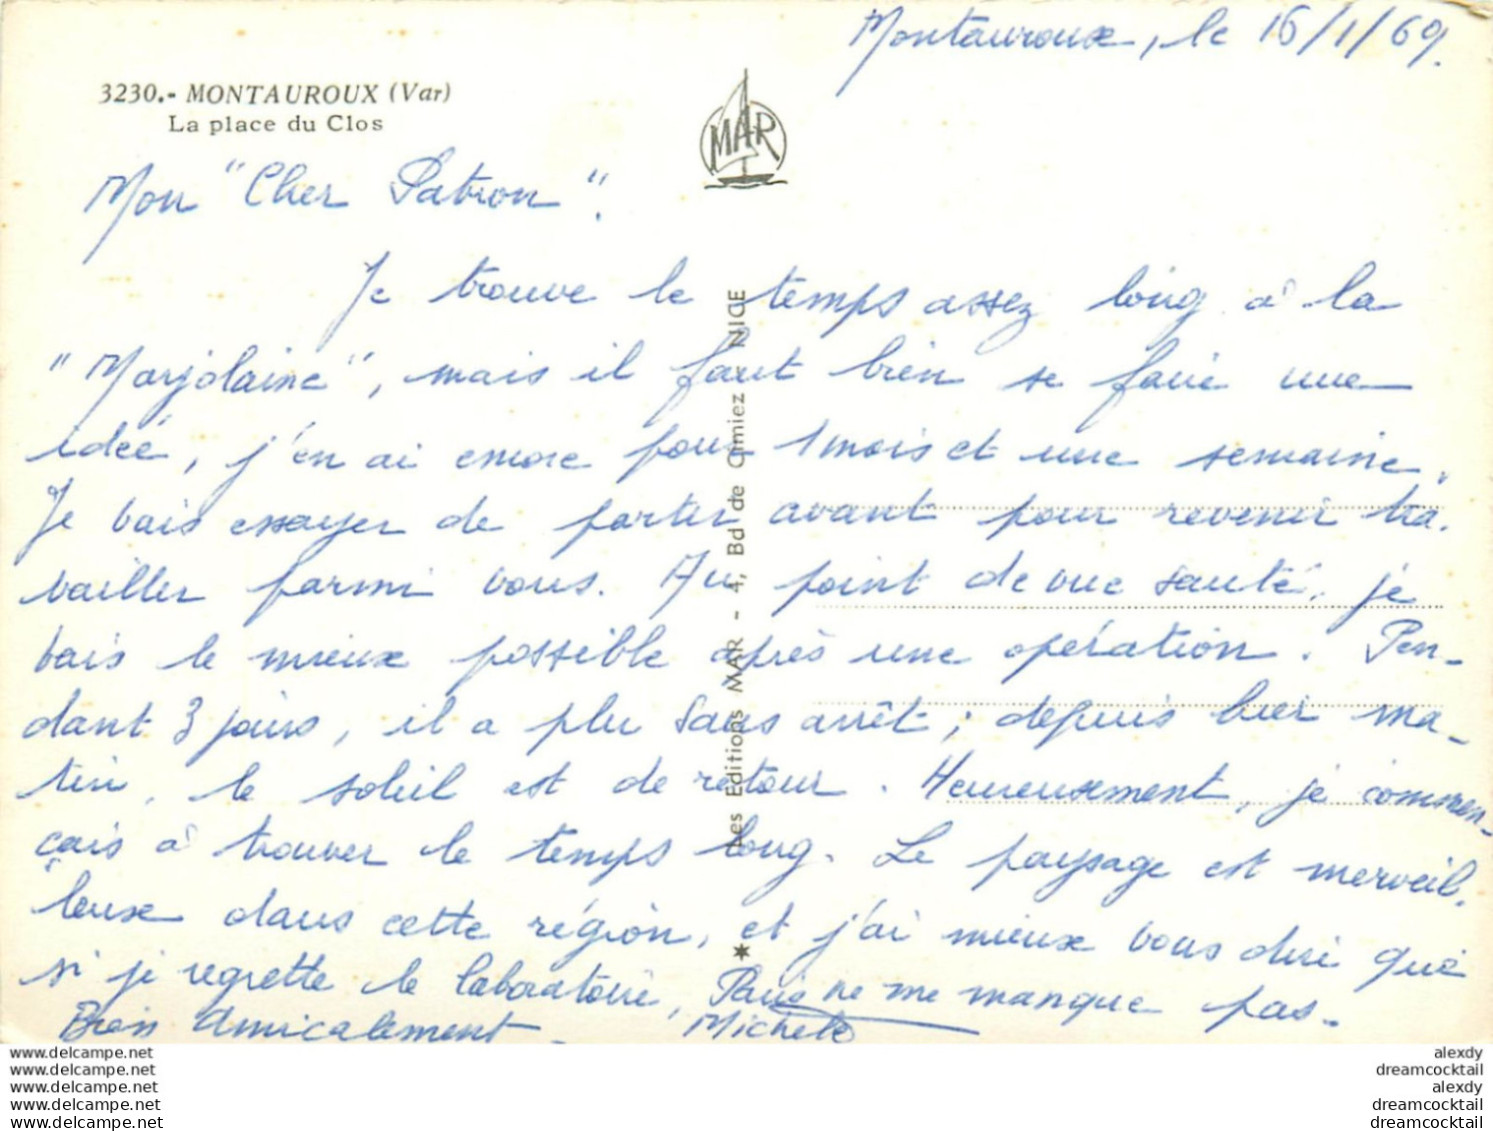 Montauroux, le 16/1/69.
3230.- MONTAUROUX (Var)
La place du Clos
MAR
Mon "Cher Patron".
Je trouve le temps assez long à la
"Marjolaine", mais il faut bien se faire une
idée, j'en ai encore pour 1 mois et une semaine.
Je vais essayer de partir avant pour revenir tra-
vailler parmi vous. Au point de vue santé, je
vais le mieux possible après une opération. Pen-
dant 3 jours, il a plu sans arrêt; depuis hier ma-
tin, le soleil est de retour. Heureusement, je commen-
çais à trouver le temps long. Le paysage est merveil-
leux dans cette région, et j'ai mieux vous dire que
si je regrette le laboratoire, Paris ne me manque pas.
Bien Amicalement
Michele
Les Editions MAR - 4, Bd de Cimiez - NICE
www.delcampe.net
www.delcampe.net
www.delcampe.net
www.delcampe.net
www.delcampe.net
alexdy
dreamcocktail
alexdy
dreamcocktail
dreamcocktail